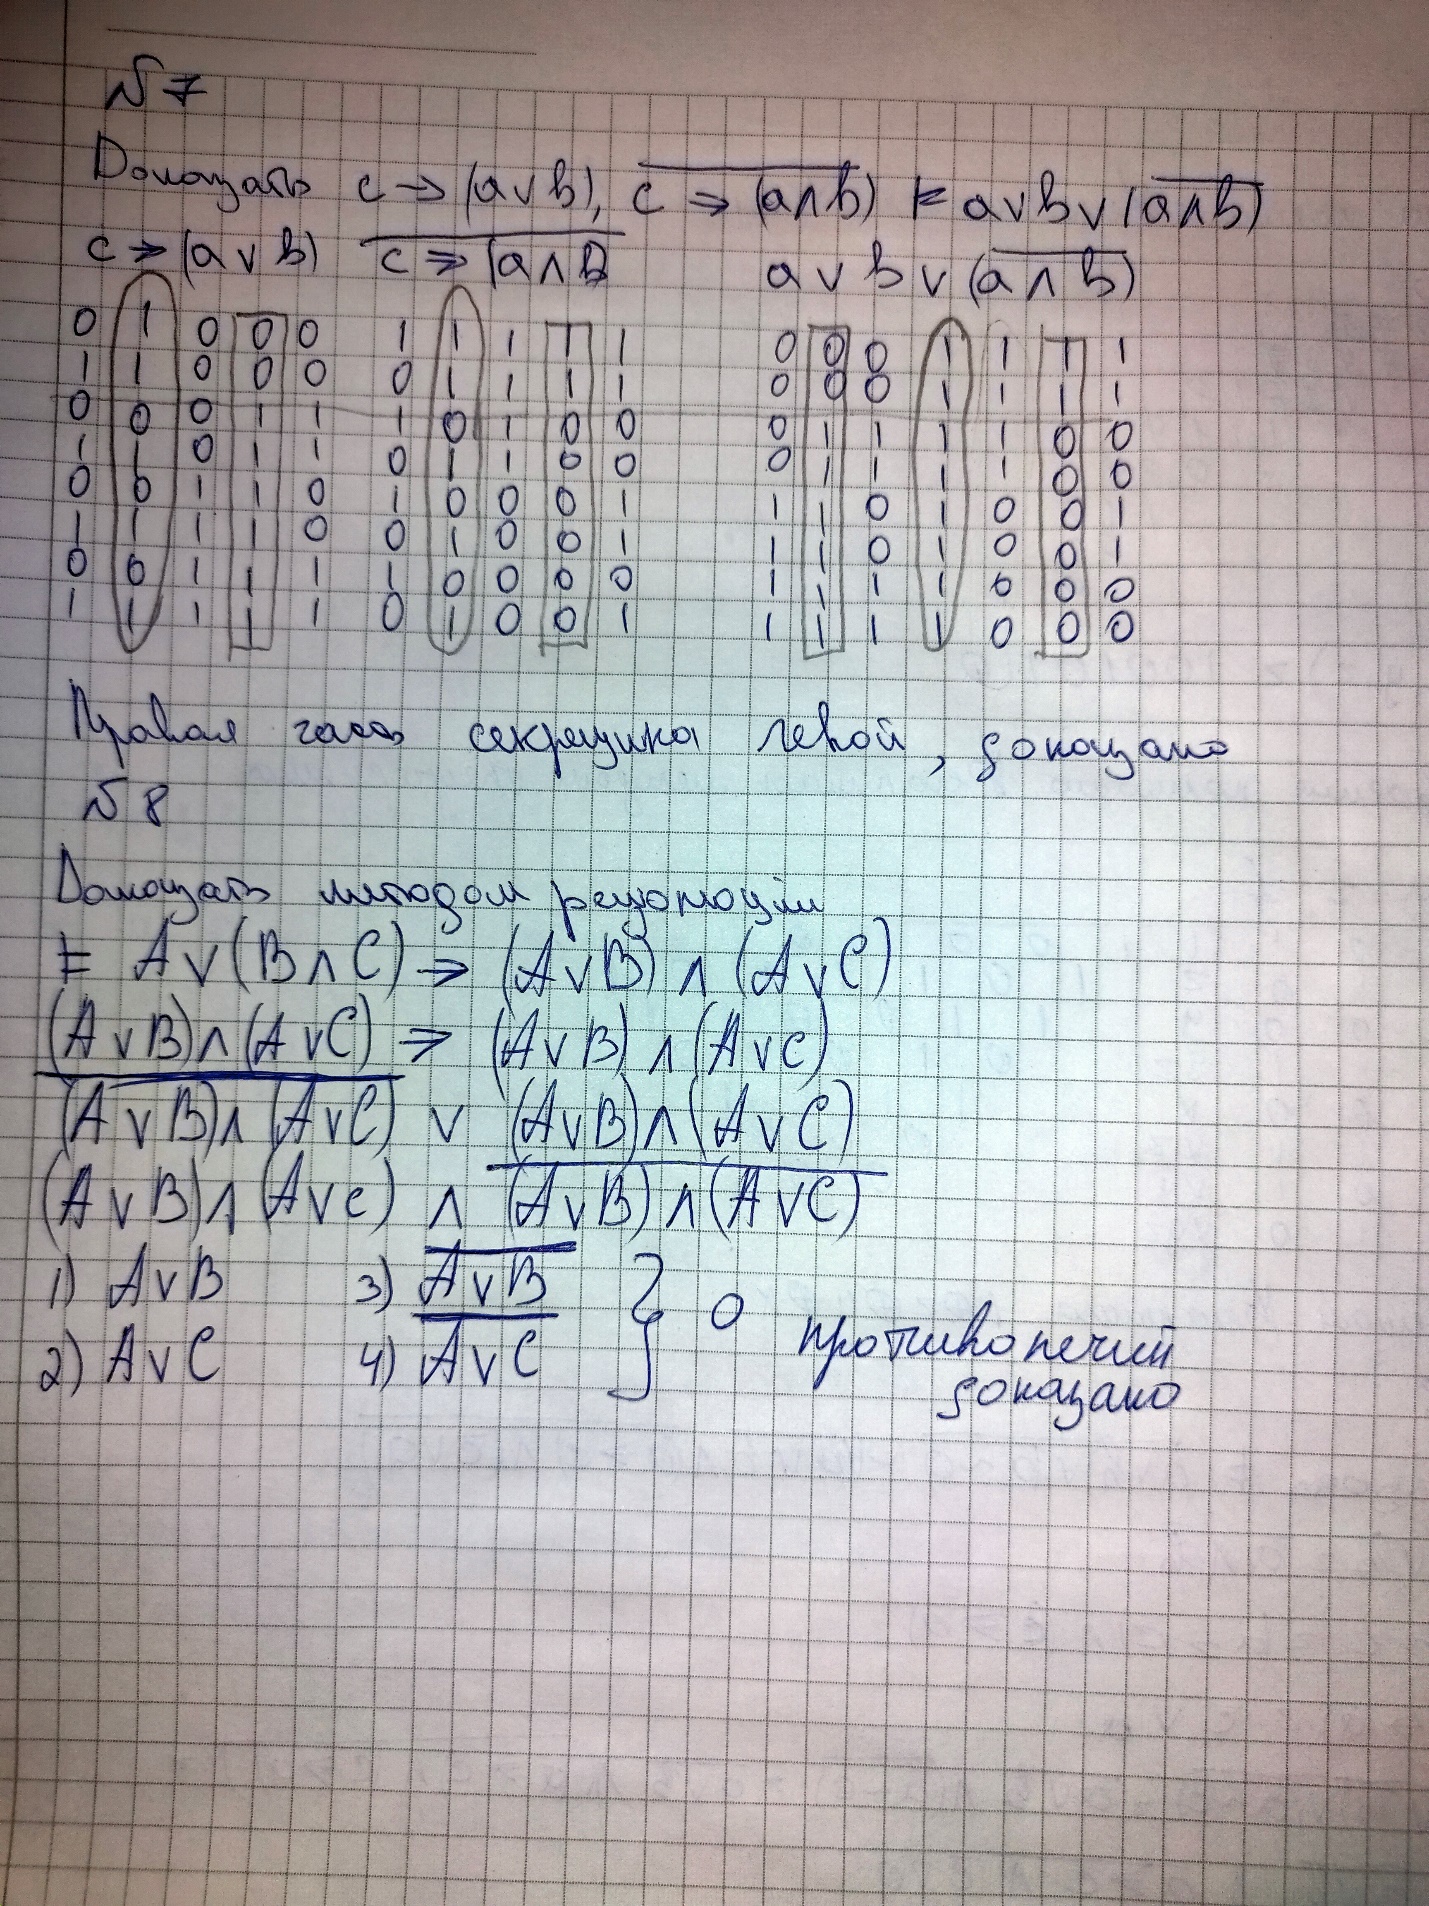 №7
Доказать c → (a∨b), \overline{c ⇒ (a∧b)} ⊨ a∨b∨(\overline{a∧b})
c ⇒ (a∨b) \overline{c ⇒ (a∧B} a∨b∨(\overline{a∧b})
0 1 0 0 0 1 1 1 1 1 0 0 0 1 1 1 1
1 1 0 0 0 0 1 1 1 1 0 0 0 1 1 1 1
0 0 0 1 1 1 0 1 0 0 0 1 1 1 1 0 0
1 1 0 1 1 0 1 1 0 0 0 1 1 1 1 0 0
0 0 1 1 0 1 0 0 0 1 1 1 0 1 0 0 1
1 1 1 1 0 0 1 0 0 1 1 1 0 1 0 0 1
0 0 1 1 1 1 0 0 0 0 1 1 1 1 0 0 0
1 1 1 1 1 0 1 0 0 1 1 1 1 1 0 0 0
Правая часть левой, доказано
№8
Доказать методом резолюции
⊨ A∨(B∧C) → (A∨B) ∧ (A∨C)
(A∨B)∧(A∨C) ⇒ (A∨B) ∧(A∨C)
\overline{(A∨B)∧(A∨C)} ∨ (A∨B)∧(A∨C)
(A∨B)∧(A∨C) ∧ \overline{(A∨B)∧(A∨C)}
1) A∨B 3) \overline{A∨B} } 0
2) A∨C 4) \overline{A∨C} противопечий
доказано